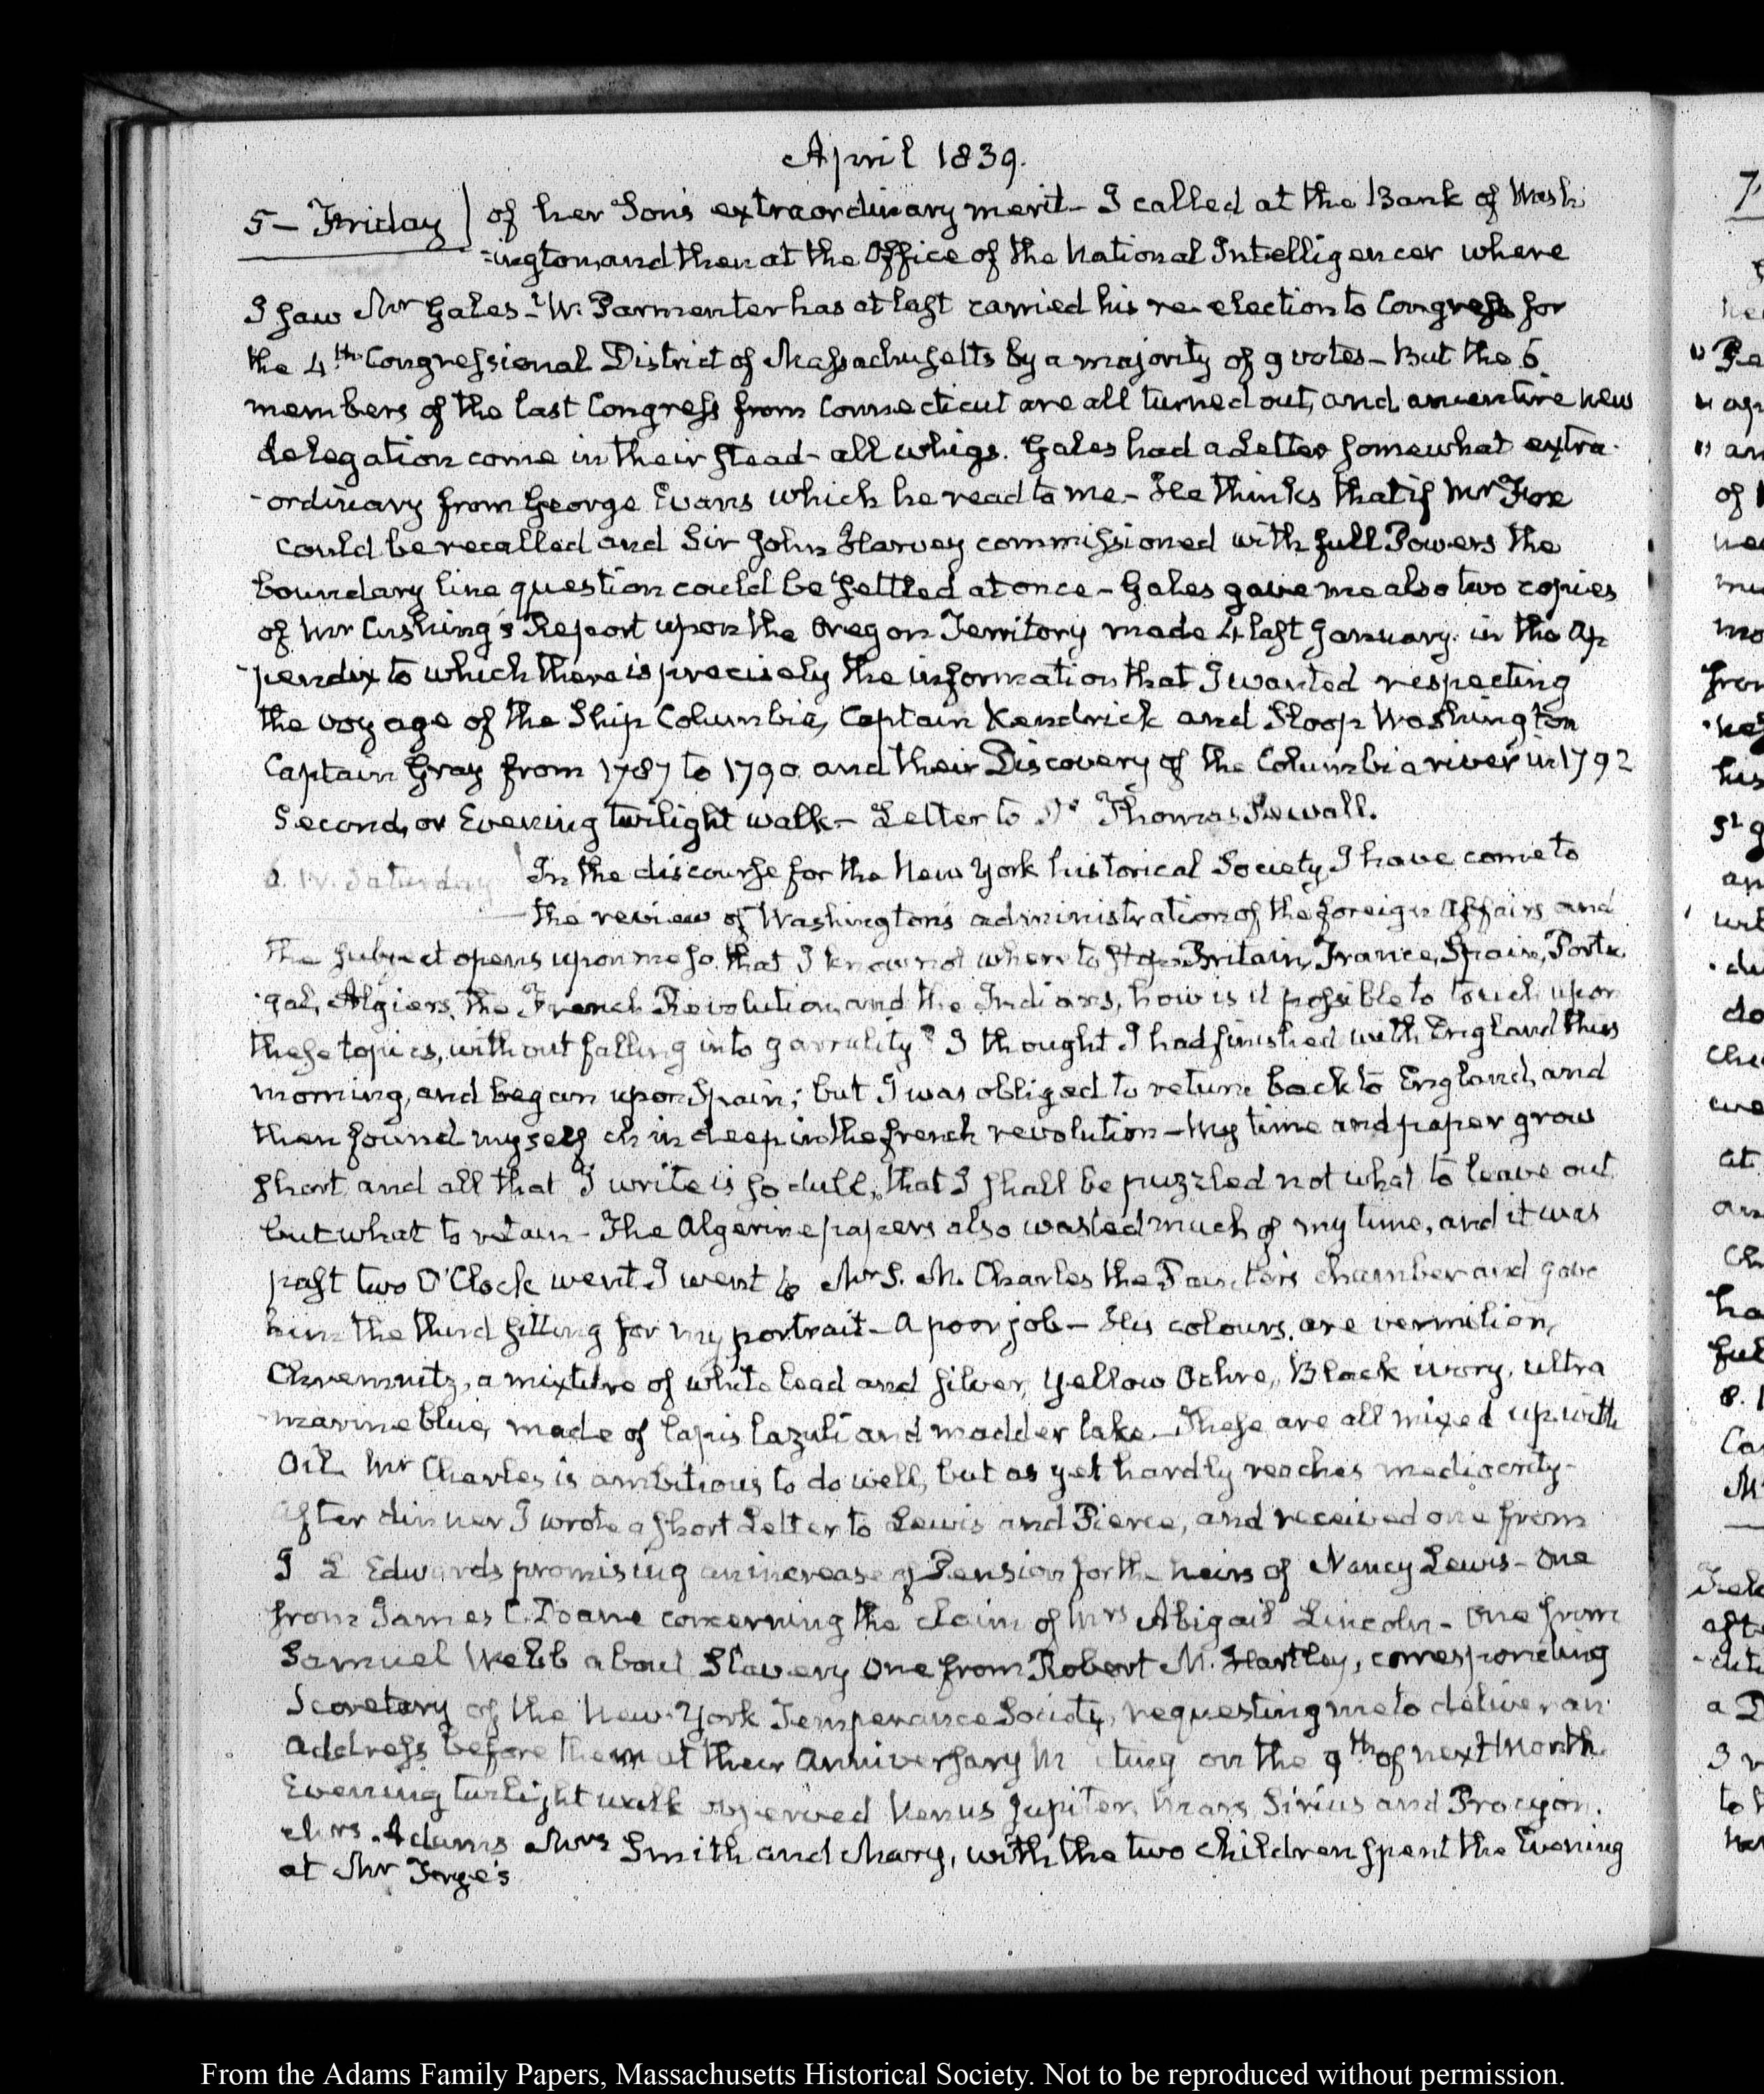 April 1839.
5 – Friday) of her Son's extraordinary merit – I called at the Bank of Wash
=ington, and then at the Office of the National Intelligencer where
I saw Mr Gales – W. Parmenter has at last carried his re-election to Congress for
the 4th Congressional District of Massachusetts by a majority of 9 votes – But the 6
members of the last Congress from Connecticut are all turned out, and an entire new
delegation come in their stead – all whigs. Gales had a Letter somewhat extra-
-ordinary from George Evans which he read to me – He thinks that if Mr Fox
could be recalled and Sir John Harvey commissioned with full Powers the
boundary line question could be settled at once – Gales gave me also two copies
of Mr Cushing's Report upon the Oregon Territory made 4 last January. in the Ap
-pendix to which there is precisely the information that I wanted respecting
the voyage of the Ship Columbia, Captain Kendrick and Sloop Washington
Captain Gray from 1787 to 1790 and their Discovery of the Columbia river in 1792
Second, or Evening twilight walk – Letter to Dr Thomas Sewall.
6. IV. Saturday) In the discourse for the New York historical Society, I have come to
the review of Washington's administration of the foreign Affairs and
the subject opens upon me so that I know not where to stop Britain, France, Spain, Portu
-gal, Algiers, the French Revolution, and the Indians, how is it possible to touch upon
these topics, without falling into garrulity? I thought I had finished with England this
morning, and began upon Spain; but I was obliged to return back to England, and
then found myself chin deep in the french revolution – My time and paper grow
short, and all that I write is so dull, that I shall be puzzled not what to leave out
but what to retain – The Algerine papers also wasted much of my time, and it was
past two O'Clock went I went to Mr S. M. Charles the Painter's chamber and gave
him the third sitting for my portrait – A poor job – His colours, are vermilion,
Chremnitz, a mixture of white lead and silver, Yellow Ochre, Black ivory, ultra
-marine blue, made of lapis lazuli and madder lake. These are all mixed up with
Oil. Mr Charles is ambitious to do well, but as yet hardly reaches mediocrity –
After dinner I wrote a short Letter to Lewis and Pierce, and received one from
J L Edwards promising an increase of Pension for the heirs of Nancy Lewis – One
from James C. Doane concerning the claim of Mrs Abigail Lincoln – One from
Samuel Webb about Slavery One from Robert M. Hartley, corresponding
Secretary of the New-York Temperance Society, requesting me to deliver an
address before them at their Anniversary M ting on the 9th of next Month.
Evening twilight walk observed Venus Jupiter, Mars, Sirius and Procyon.
Mrs Adams Mrs Smith and Mary, with the two children spent the Evening
at Mr Frye's
From the Adams Family Papers, Massachusetts Historical Society. Not to be reproduced without permission.